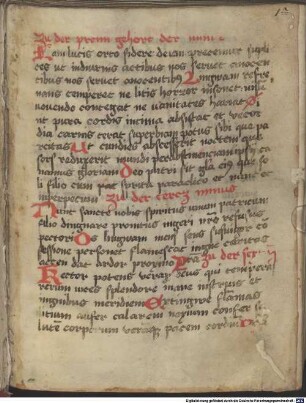 Zu der prim gehort der
Iam lucis orto sidere deum precemur supli
ces ut in diurnis actibus nos servet a nocen
tibus nos servet a nocentibus Linguam refre
nans temperet ne litis horror insonet visum
fovendo contegat ne vanitates hauriat
int pura cordis intima absistat et vecor
dia carnis terat superbiam potus cibi que par
citas Ut cum dies abscesserit noctem que
sors reduxerit mundi per abstinenciam ipsi ca
namus gloriam Deo patri sit gloria eius que so
li filio cum
Zu der tercz
Nunc sancte nobis spiritus unum patri cum
filio dignare promptus ingeri nostro refusus
pectori Os lingwam mens sensus vigor con
fessione personet flamescat igne caritas
accendat ardor proximos Zu der sext
Rector potens verax deus qui temperas
rerum vices splendore mane instruis et
ignibus meridiem Extingwe flammas
litium aufer calorem noxium confer sa
lutem corporum veramque pacem cordium